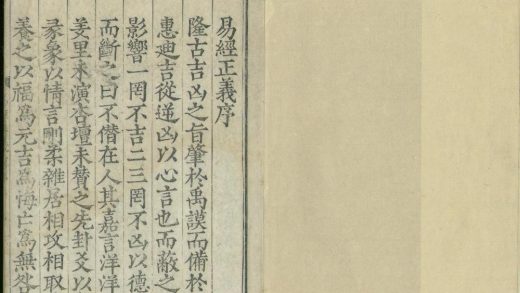 易經正義序
隆古吉凶之旨肇於禹謨而備於
惠迪吉從逆凶以心言也而蔽之
影響一罔不吉二三罔不凶以德
而斷之曰不僣在人其嘉言洋洋
羑里未演杏壇未贊之先卦爻以
彖象以情言剛柔雜居相攻相取
養之以福為元吉為悔亡為無咎